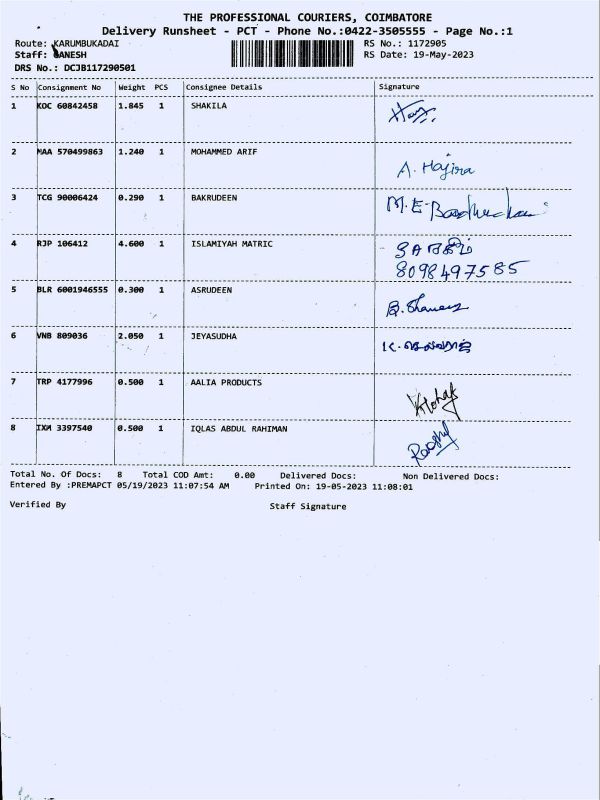 THE PROFESSIONAL COURIERS, COIMBATORE
Delivery Runsheet - PCT - Phone No.:0422-3505555 - Page No.:1
Route: KARUMBUKADAI RS No.: 1172905
Staff: GANESH RS Date: 19-May-2023
DRS No.: DCJB117290501
S No Consignment No Weight PCS Consignee Details Signature
1 KOC 60842458 1.845 1 SHAKILA
2 MAA 570499863 1.240 1 MOHAMMED ARIF A. Hajira
3 TCG 90006424 0.290 1 BAKRUDEEN M.E-
4 RJP 106412 4.600 1 ISLAMIYAH MATRIC
8098497585
5 BLR 6001946555 0.300 1 ASRUDEEN
6 VNB 809036 2.050 1 JEYASUDHA
7 TRP 4177996 0.500 1 AALIA PRODUCTS
8 IXM 3397540 0.500 1 IQLAS ABDUL RAHIMAN
Total No. Of Docs: 8 Total COD Amt: 0.00 Delivered Docs: Non Delivered Docs:
Entered By :PREMAPCT 05/19/2023 11:07:54 AM Printed On: 19-05-2023 11:08:01
Verified By Staff Signature